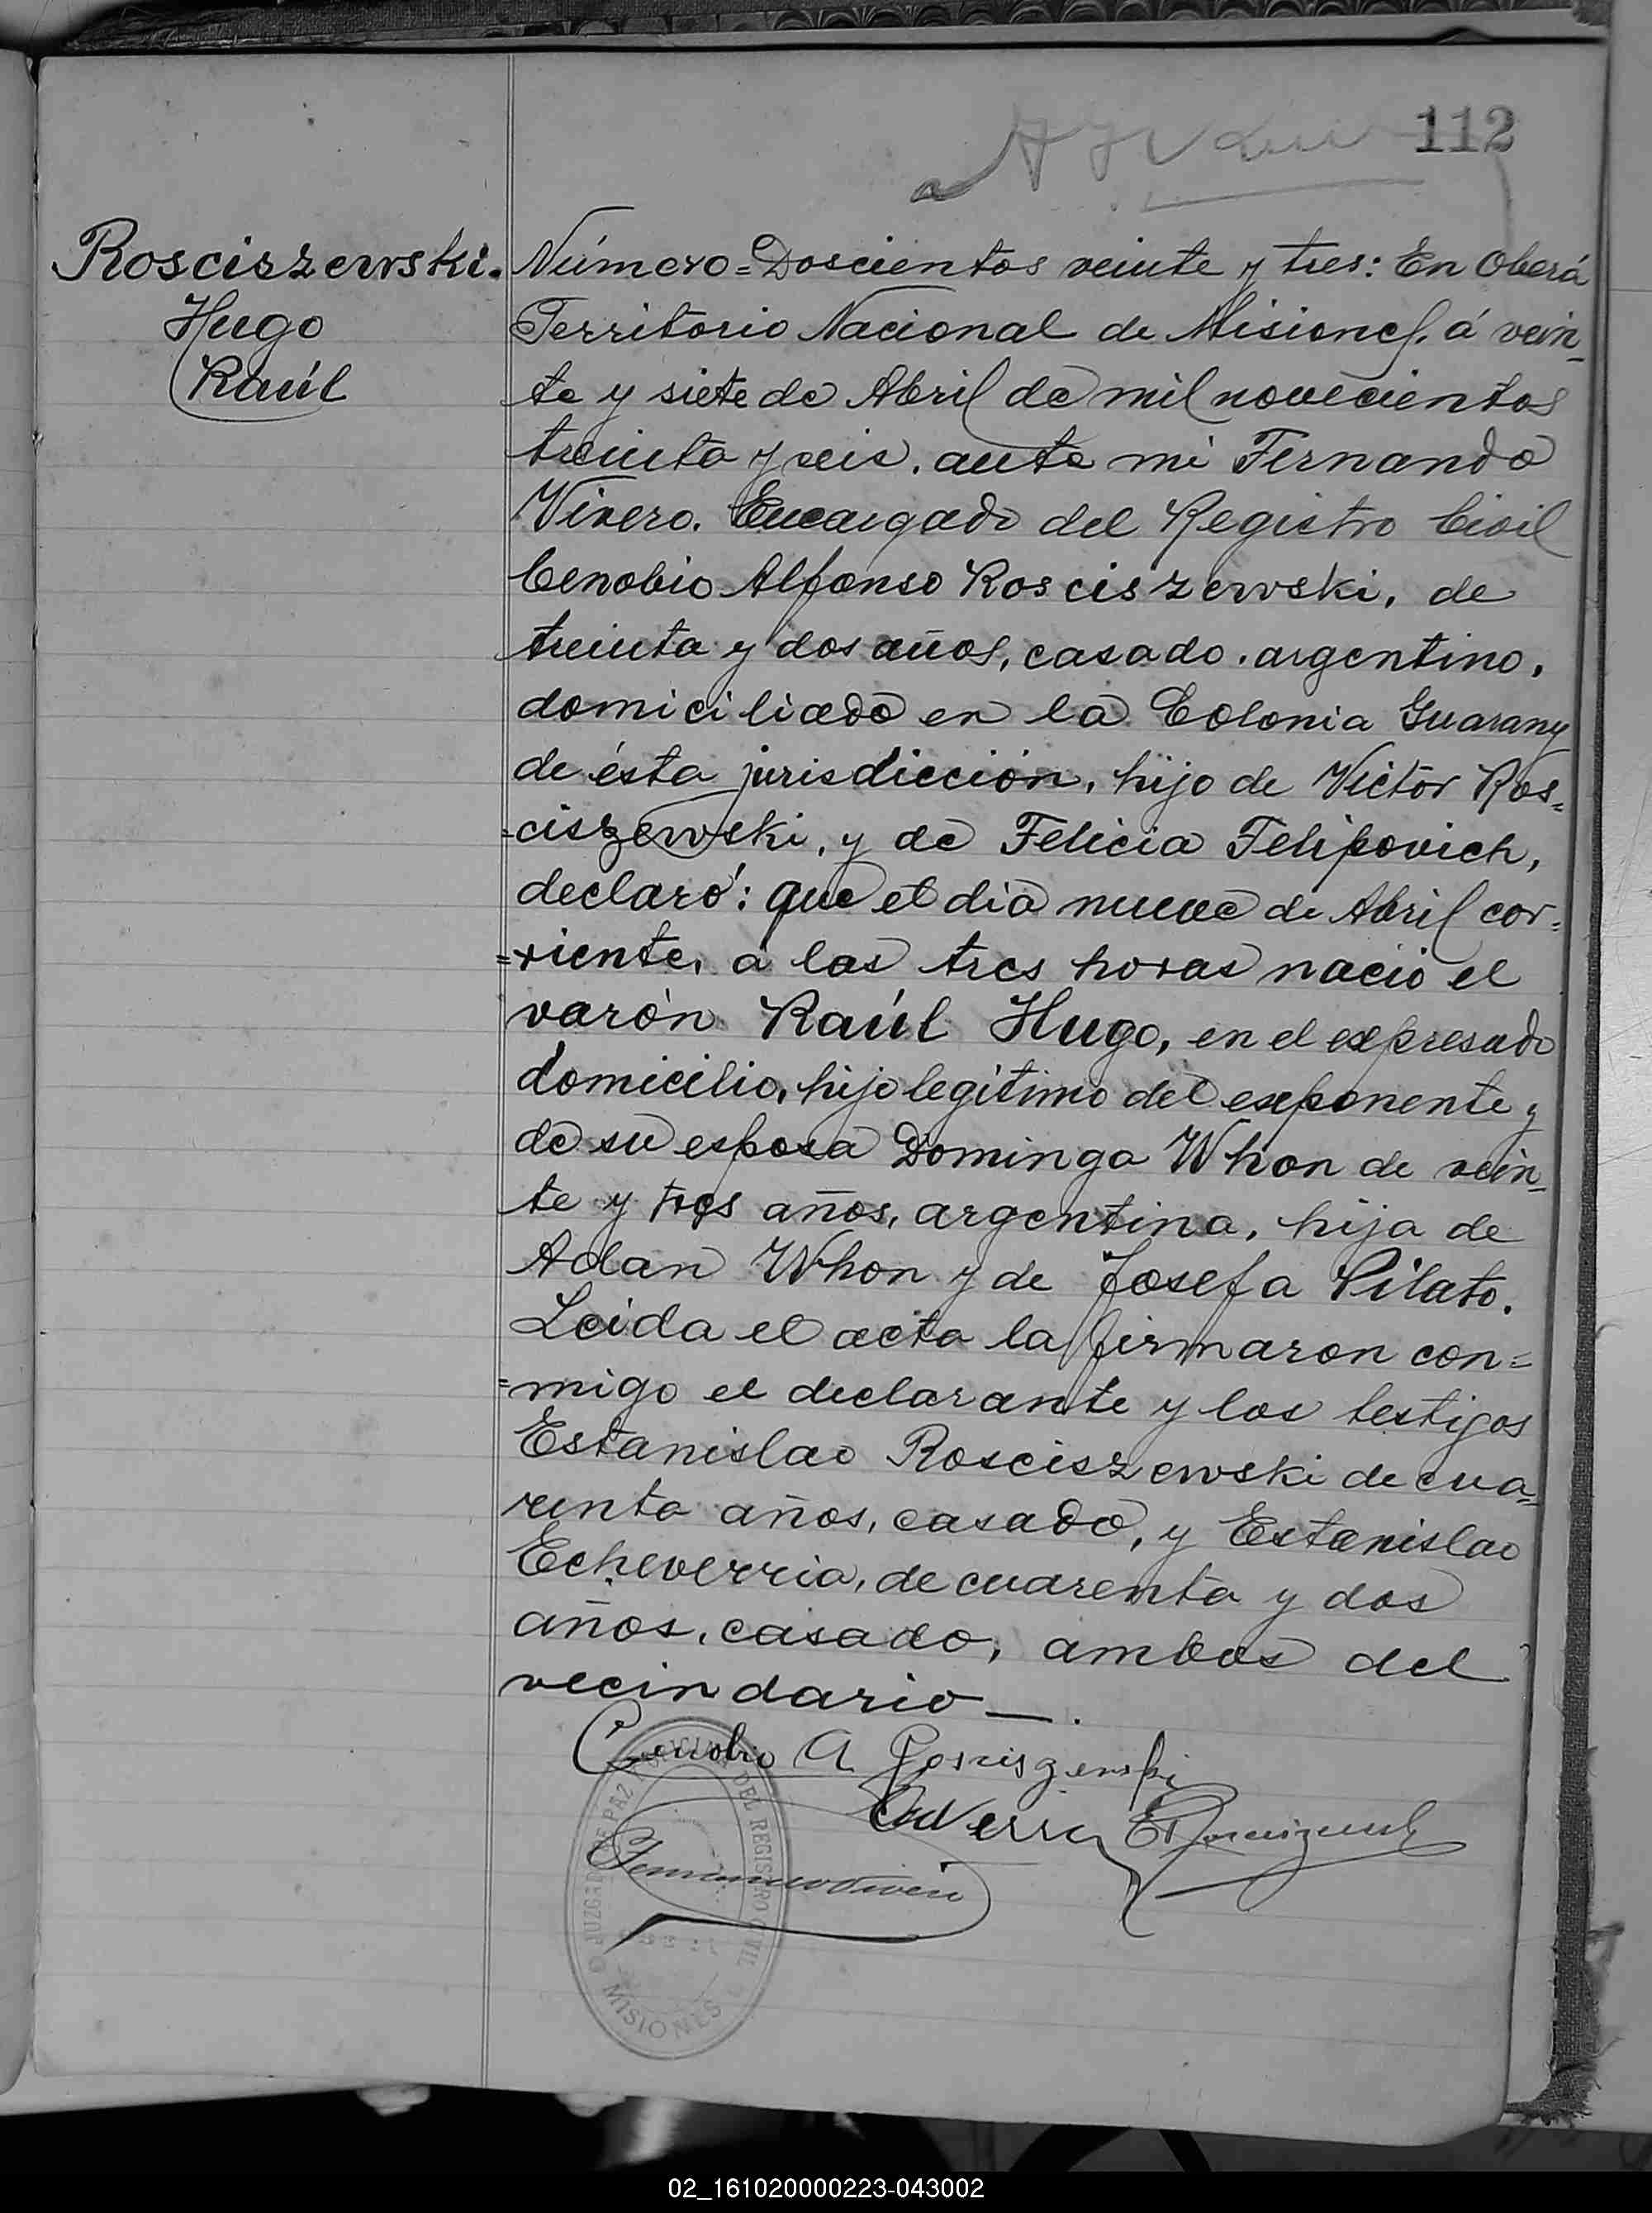 112
Rosciszewski.
Hugo
Raúl
Número=Doscientos veinte y tres: En Oberá
Territorio Nacional de Misiones, á vein-
te y siete de Abril de mil novecientos
treinta y seis, ante mi Fernando
Vivero, Encargado del Registro Civil
Cenobio Alfonso Rosciszewski, de
treinta y dos años, casado, argentino,
domiciliado en la Colonia Guarany
de ésta jurisdicción, hijo de Victor Ros=
=ciszewski, y de Felicia Felipovich,
declaró: que el dia nueve de Abril cor=
=riente, a las tres horas nació el
varón Raúl Hugo, en el expresado
domicilio, hijo legitimo del exponente y
de su esposa Dominga Whon de vein-
te y tres años, argentina, hija de
Adan Whon y de Josefa Pilato.
Leida el acta la firmaron con=
=migo el declarante y los testigos
Estanislao Rosciszewski de cua=
renta años, casado, y Estanislao
Echeverria, de cuarenta y dos
años, casado, ambos del
vecindario —.
Cenobio A Rosciszewski
JUZGADO DE PAZ Y OFICINA DEL REGISTRO CIVIL
MISIONES
02_161020000223-043002